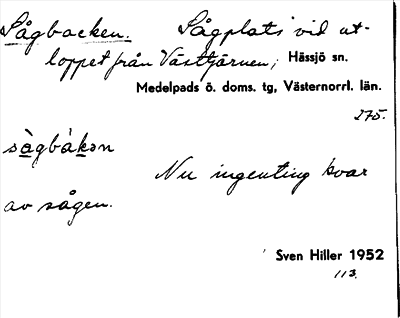 Sågbacken. Sågplats vid ut-
loppet från Västtjärnen; Hässjö sn.
Medelpads ö. doms. tg, Västernorrl. län.
275.
sàgbákən
Nu ingenting kvar
av sågen.
Sven Hiller 1952
113.